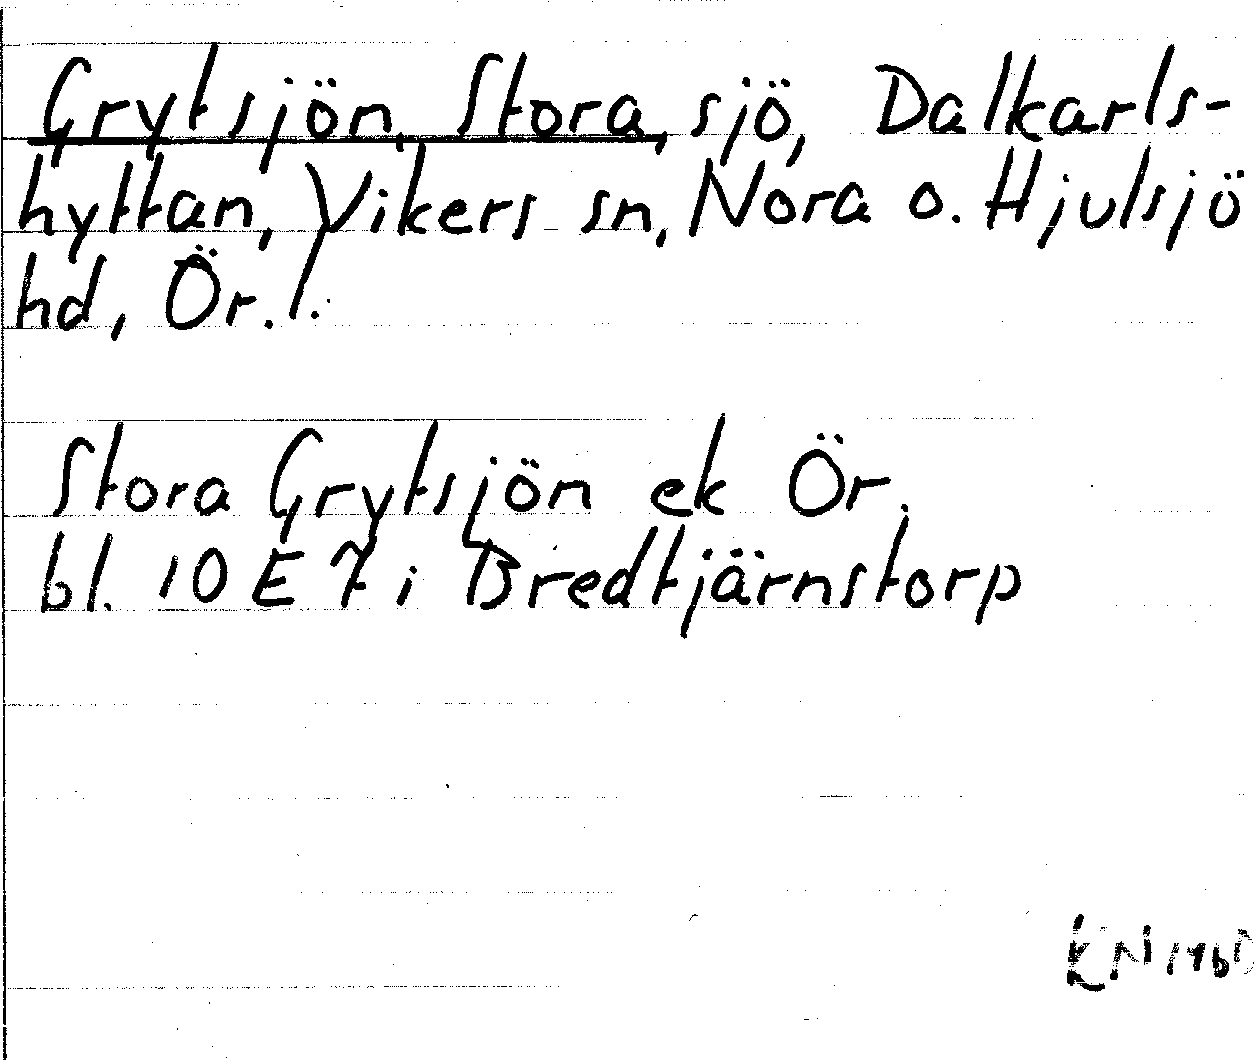 Grytsjön, Stora, sjö, Dalkarls-
hyttan, Vikers sn, Nora o. Hjulsjö
hd, Ör. l.
Stora Grytsjön ek Ör.
bl. 10 E 7 i Bredtjärnstorp
KN 1960